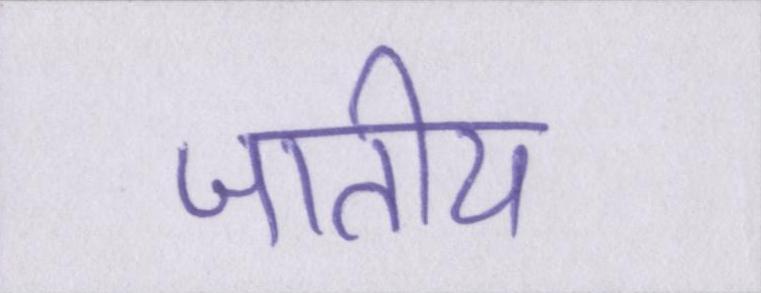 जातीय